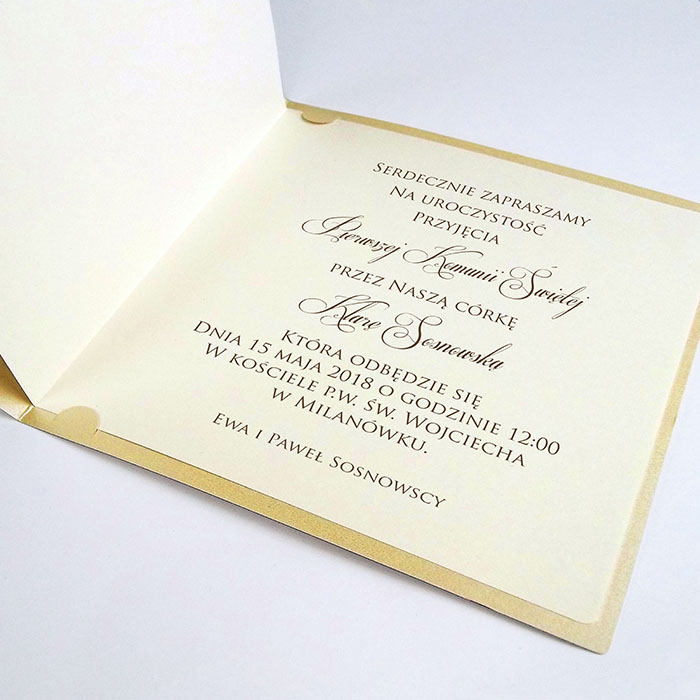 Serdecznie zapraszamy
Na uroczystość
przyjęcia
Pierwszej Komunii Świętej
przez Naszą córkę
Klarę Sosnowską
Która odbędzie się
Dnia 15 maja 2018 o godzinie 12:00
w kościele p.w. św. Wojciecha
w Milanówku.
Ewa i Paweł Sosnowscy